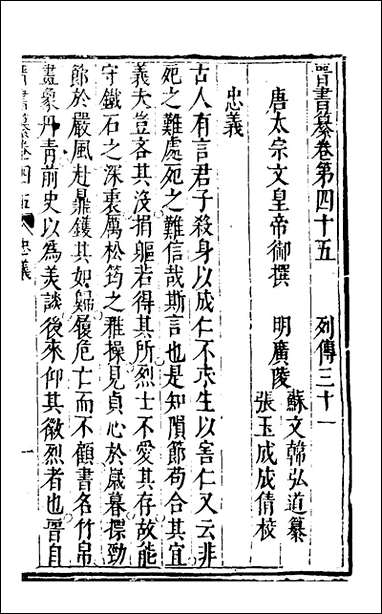 晉書纂卷第四十五　列傳三十一
唐太宗文皇帝御撰　明廣陵
蘇文韓弘道纂
張玉成成倩校
忠義
古人有言君子殺身以成仁不求生以害仁又云非
死之難處死之難信哉斯言也是知隕節苟合其宜
義夫豈吝其沒捐軀若得其所烈士不愛其存故能
守鐵石之深衷厲松筠之雅操見貞心於歲暮摽勁
節於嚴風赴鼎鑊其如歸履危亡而不顧書名竹帛
畫象丹青前史以爲美談後來仰其徽烈者也晉自
晉書纂卷四五　忠義　一